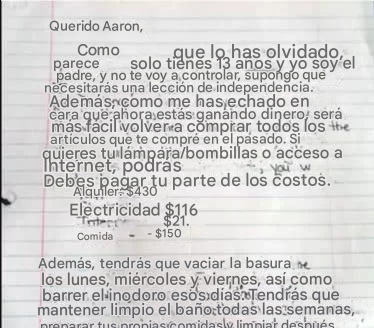 Querido Aaron,
Como que lo has olvidado,
parece solo tienes 13 años y yo soy el
padre, y no te voy a controlar, supongo que
necesitarás una lección de independencia.
Además, como me has echado en
cara que ahora estás ganando dinero, será
más fácil volver a comprar todos los the
artículos que te compré en el pasado. Si
quieres tu lámpara/bombillas o acceso a
Internet, podrás you w
Debes pagar tu parte de los costos.
Alquiler: $430
Electricidad $116
$21.
Comida - - $150
Además, tendrás que vaciar la basura
los lunes, miércoles y viernes, así como
barrer el inodoro esos días. Tendrás que
mantener limpio el baño todas las semanas,
preparar tus propias comidas y limpiar después